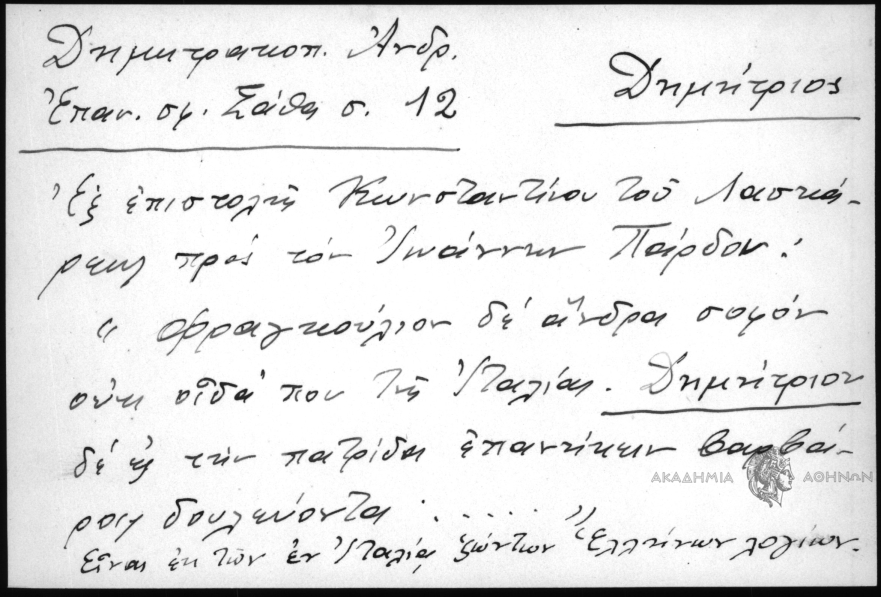 Δημητρακοπ. Ἀνδρ.
Ἐπαν. σφ. Σάθα σ. 12
Δημήτριος
Ἐξ ἐπιστολῆς Κωνσταντίνου τοῦ Λασκά-
ρεως πρός τόν Ἰωάννην Πάρδον:
" Φραγκούλιον δέ ἄνδρα σοφόν
οὐκ οἶδά που τῆς Ἰταλίας. Δημήτριον
δέ εἰς τήν πατρίδα ἐπανήκειν βαρβά-
ροις δουλεύοντα . . . . . . "
Εἶναι ἐκ τῶν ἐν Ἰταλίᾳ ζώντων Ἑλλήνων λογίων.
ΑΚΑΔΗΜΙΑ ΑΘΗΝΩΝ